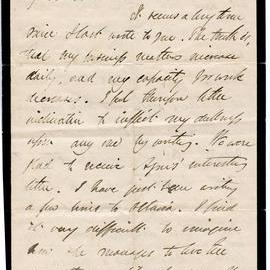 It seems a long time
since I last wrote to you. The truth is,
that my business matters increase
daily, and my capacity for work
decreases. I feel therefore little
inclination to inflict my dullness
upon any one by writing. We were
glad to receive interesting
letter. I have just been writing
a few lines to Octavia. I find
it very difficult to imagine
how she manages to live